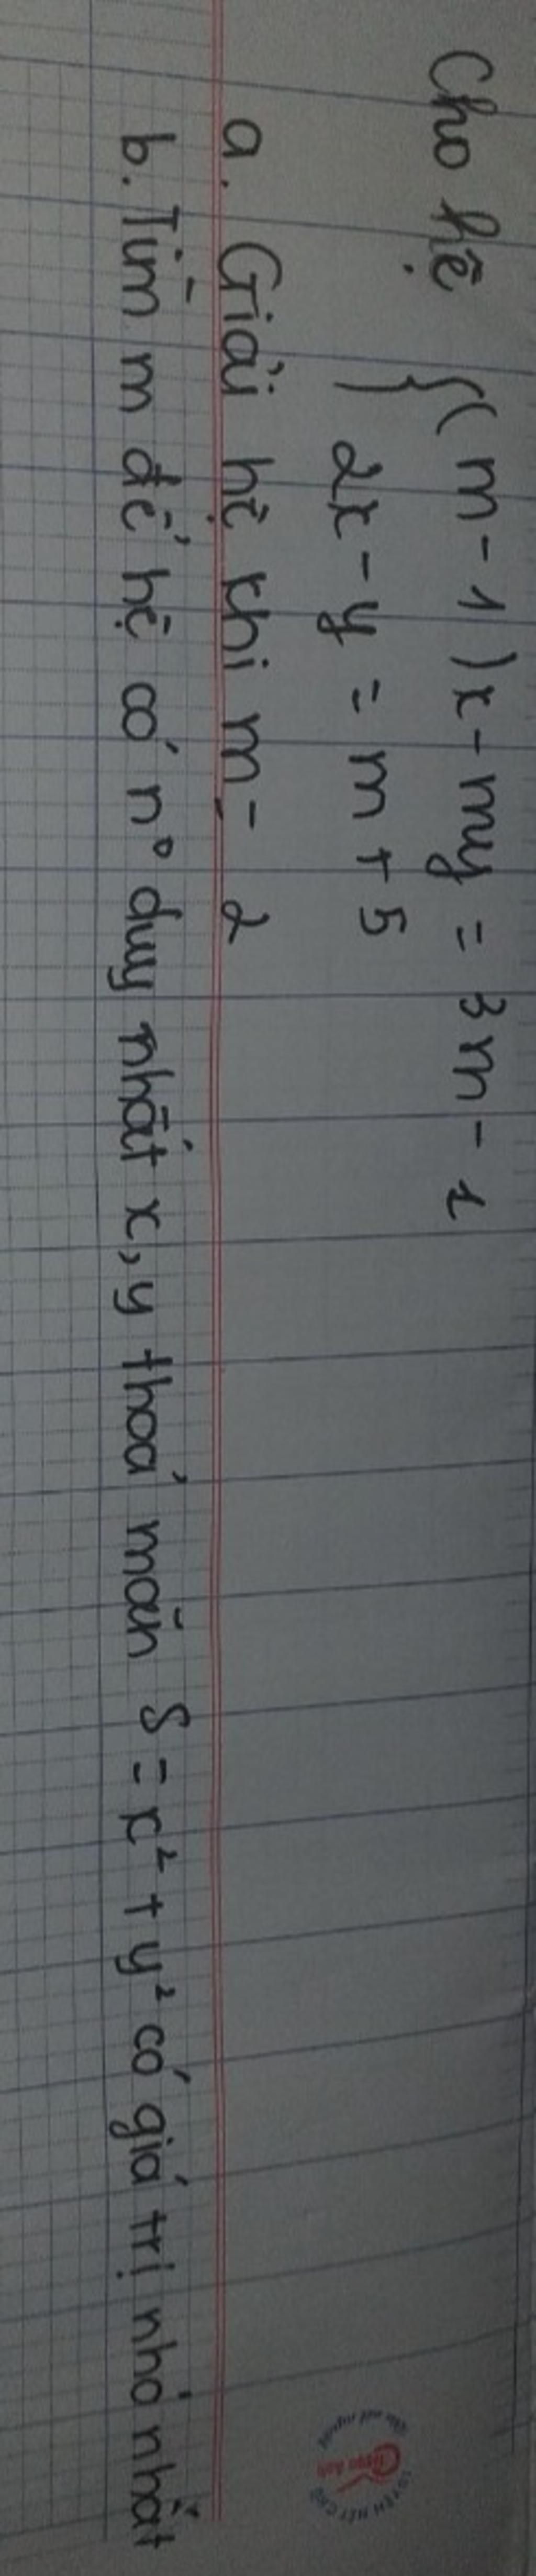 Cho hệ { (m-1)x - my = 3m - 1
2x - y = m + 5
a. Giải hệ khi m = 2
b. Tìm m để hệ có n° duy nhất x, y thoả mãn S = x² + y² có giá trị nhỏ nhất